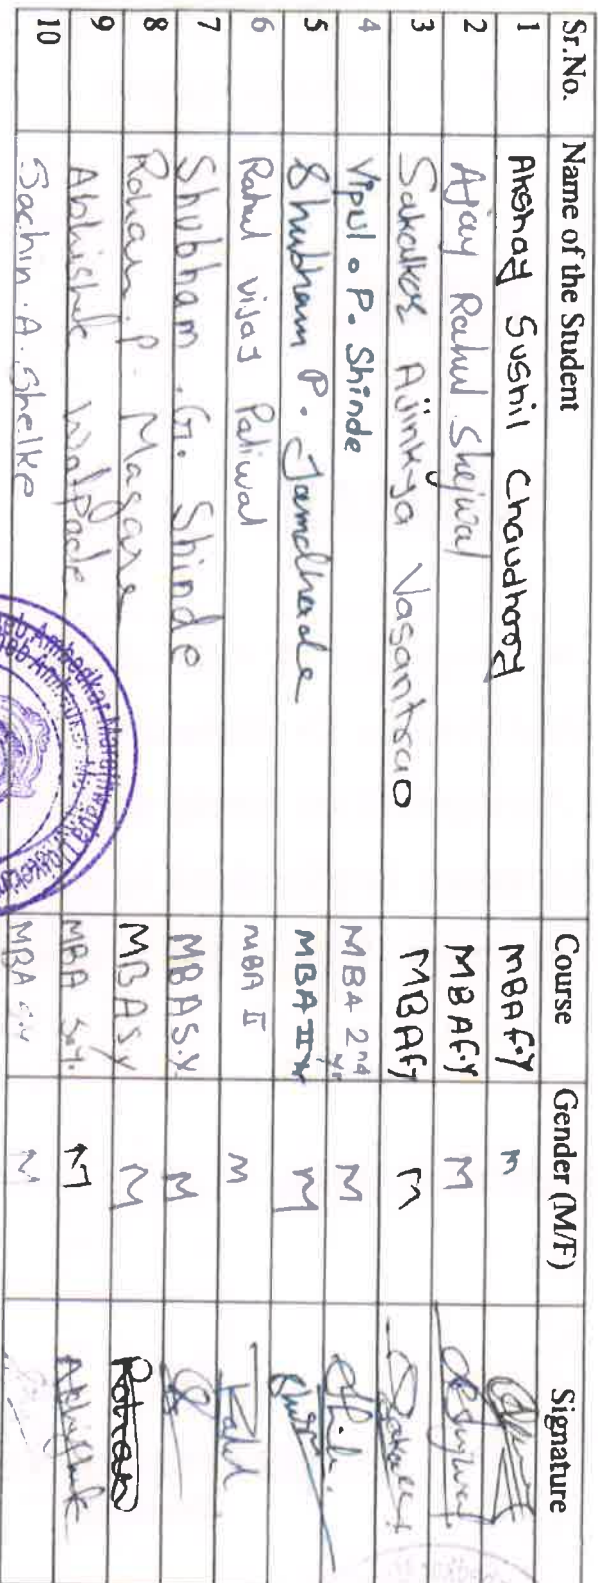 Sr.No. Name of the Student Course Gender (M/F) Signature
1 Akshay Sushil Chaudhary MBA F.Y M
2 Ajay Rahul Shejwal MBA F.Y M
3 Sakalkar Ajinkya Vasantrao MBA F.Y M
4 Vipul . P. Shinde MBA 2nd yr M
5 Shubham P. Jamdhade MBA II yr M
6 Rahul Vijay Paliwal MBA II M
7 Shubham . G. Shinde MBA S.Y. M
8 Rohan . P. Magare MBA S.Y M Rohan
9 Abhishek Walpade MBA S.Y. M Abhishek
10 Sachin . A. Shelke MBA M
Ambedkar Marathwada